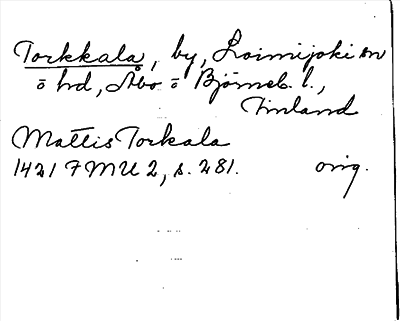 Torkkala, by, Loimijoki sn
o hd, Åbo o Björneb. l.,
Finland
Mattis Torkala
1421 FMU 2, s. 281. orig.